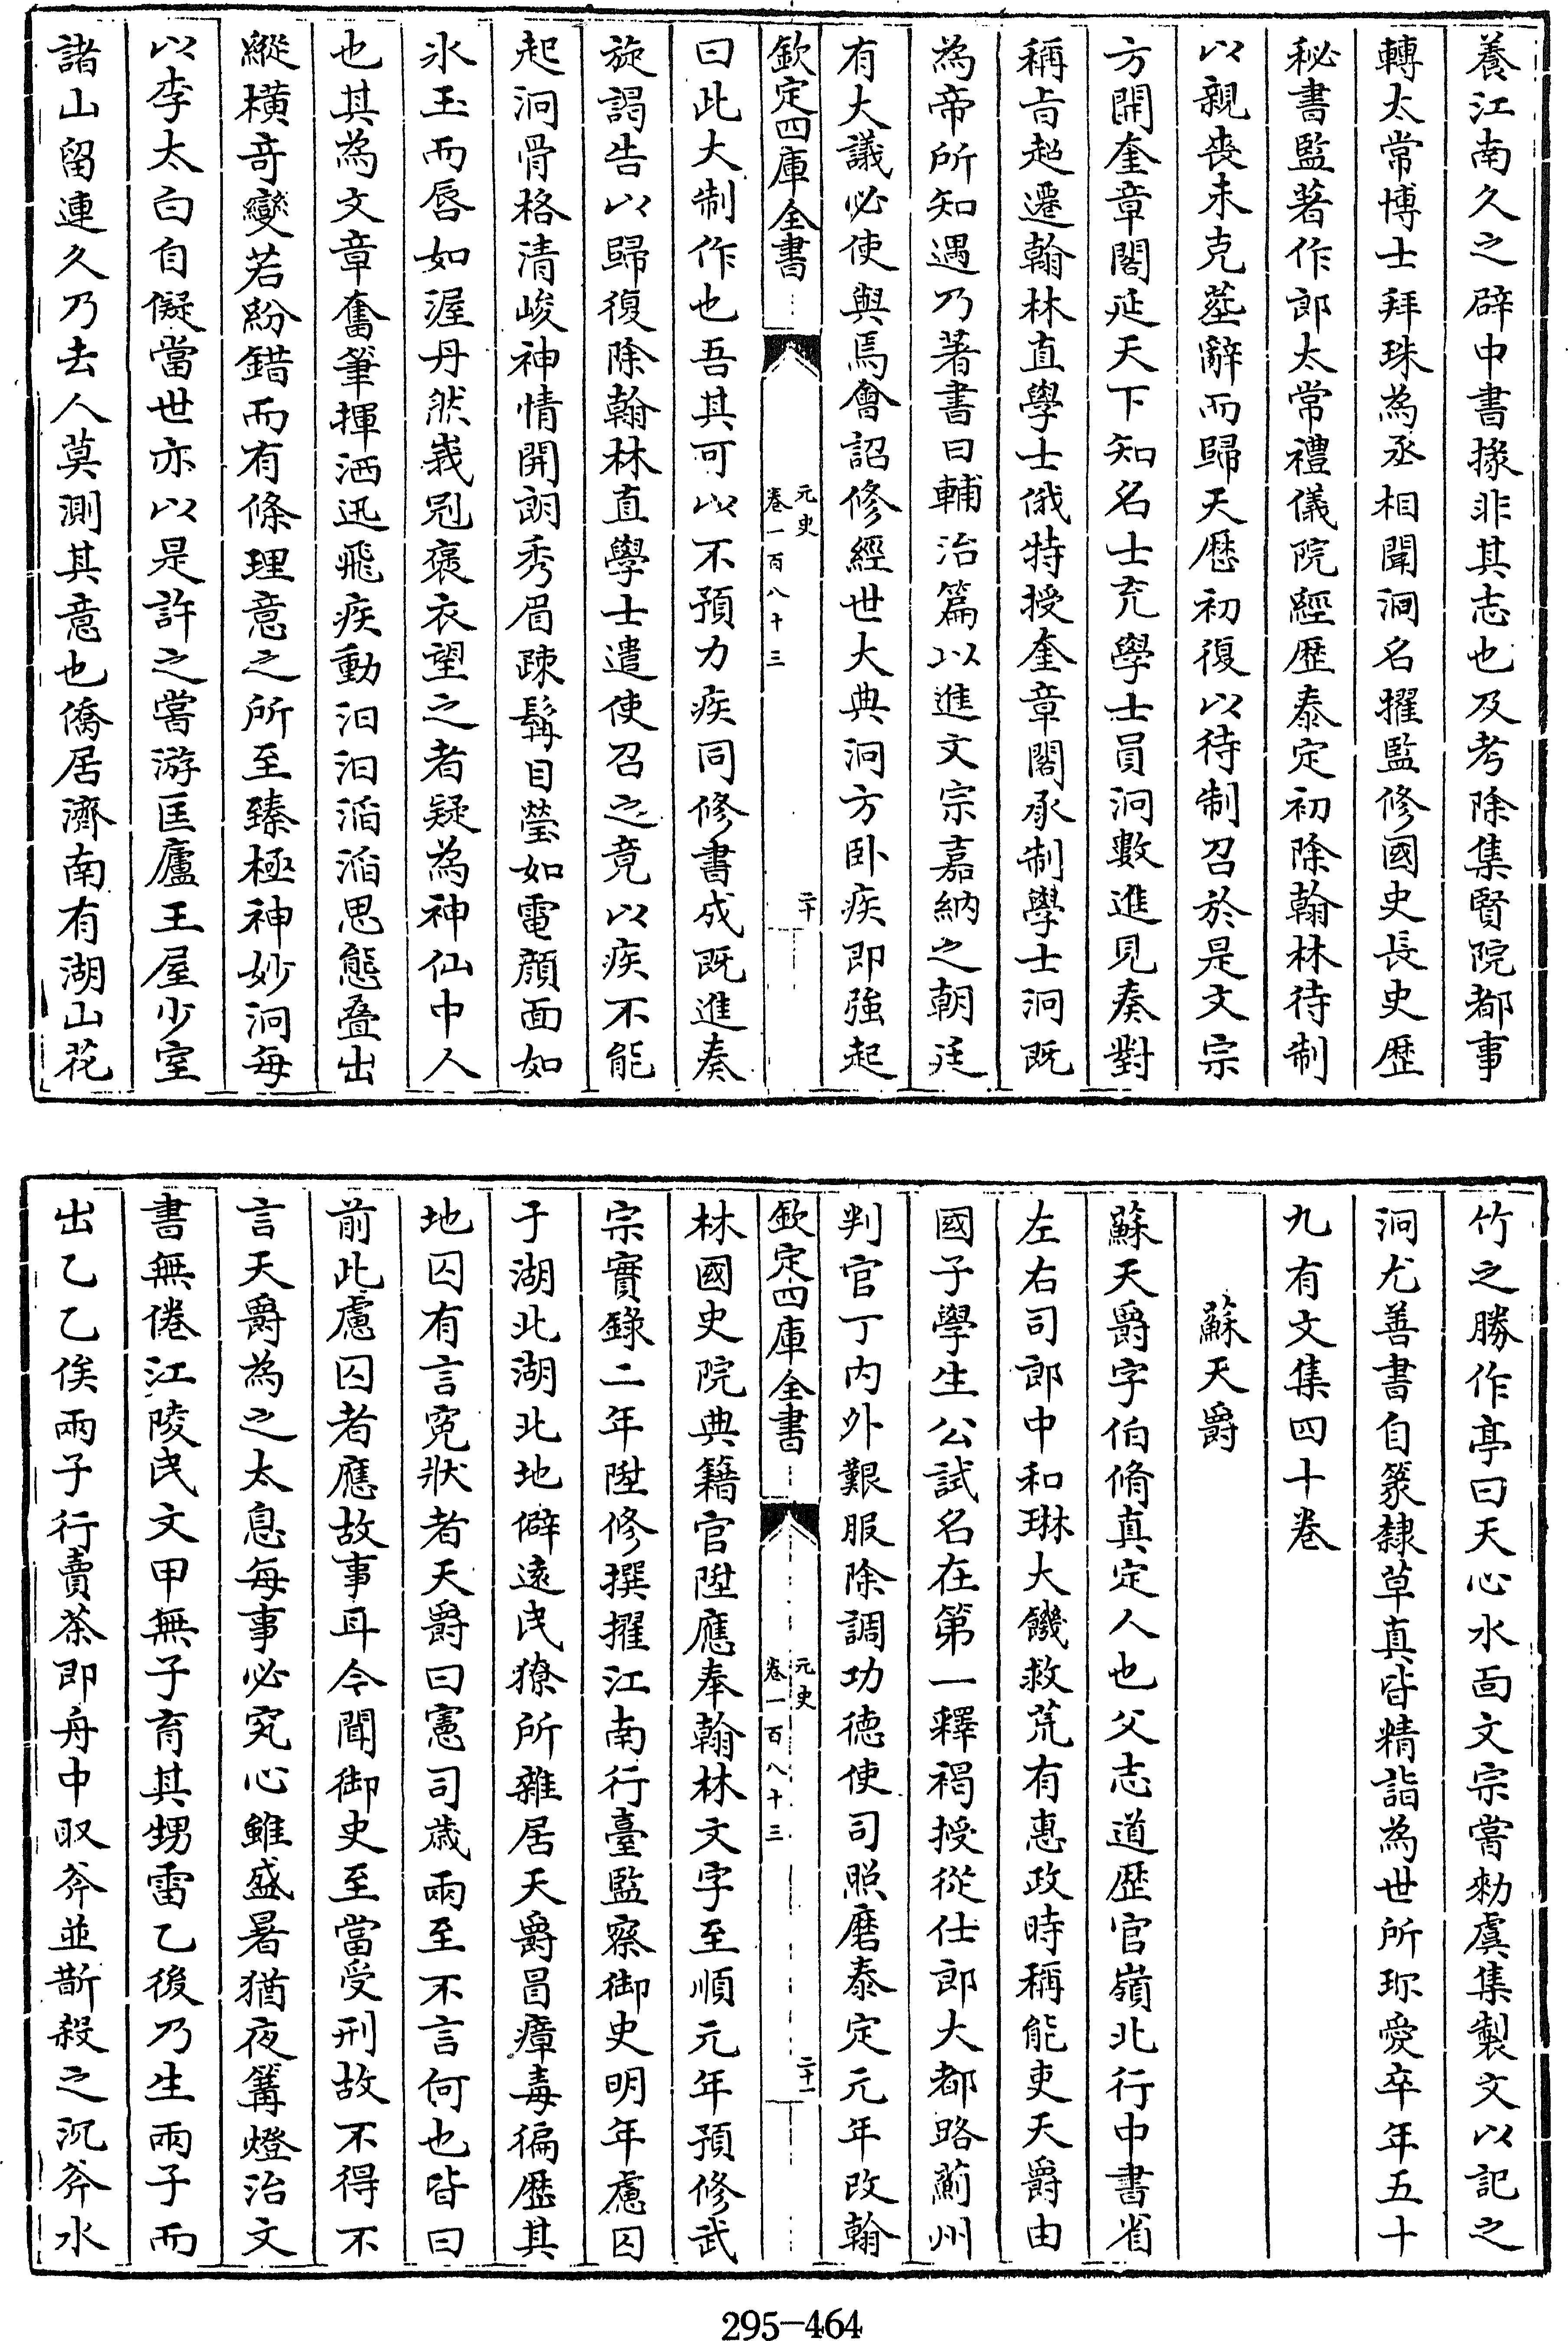 養江南久之辟中書掾非其志也及考除集賢院都事
轉太常博士拜珠為丞相聞泂名擢監修國史長史歴
秘書監著作郎太常禮儀院經歴泰定初除翰林待制
以親喪未克塟辭而歸天歴初復以待制召於是文宗
方開奎章閣延天下知名士充學士員泂數進見奏對
稱㫖超遷翰林直學士俄特授奎章閣承制學士泂既
為帝所知遇乃著書曰輔治篇以進文宗嘉納之朝廷
有大議必使與焉會詔修經世大典泂方卧疾即強起
欽定四庫全書
元史
卷一百八十三
二十
曰此大制作也吾其可以不預力疾同修書成既進奏
旋謁告以歸復除翰林直學士遣使召之竟以疾不能
起泂骨格清峻神情開朗秀眉疎髯目瑩如電顔面如
氷玉而唇如渥丹然峩冠褒衣望之者疑為神仙中人
也其為文章奮筆揮洒迅飛疾動汨汨滔滔思態疊出
縱横竒變若紛錯而有條理意之所至臻極神妙泂每
以李太白自儗當世亦以是許之嘗游匡廬王屋少室
諸山留連久乃去人莫測其意也僑居濟南有湖山花
竹之勝作亭曰天心水面文宗嘗勑虞集製文以記之
泂尤善書自篆隸草真皆精詣為世所珎愛卒年五十
九有文集四十卷
蘇天爵
蘇天爵字伯脩真定人也父志道歴官嶺北行中書省
左右司郎中和琳大饑救荒有惠政時稱能吏天爵由
國子學生公試名在第一釋褐授從仕郎大都路薊州
判官丁内外艱服除調功德使司照磨泰定元年改翰
欽定四庫全書
元史
卷一百八十三
二十一
林國史院典籍官陞應奉翰林文字至順元年預修武
宗實錄二年陞修撰擢江南行臺監察御史明年慮囚
于湖北湖北地僻遠民獠所雜居天爵冒瘴毒徧歴其
地囚有言寃狀者天爵曰憲司歳兩至不言何也皆曰
前此慮囚者應故事耳今聞御史至當受刑故不得不
言天爵為之太息每事必究心雖盛暑猶夜篝燈治文
書無倦江陵民文甲無子育其甥雷乙後乃生兩子而
出乙乙俟兩子行賣茶即舟中取斧並斮殺之沉斧水
295-464